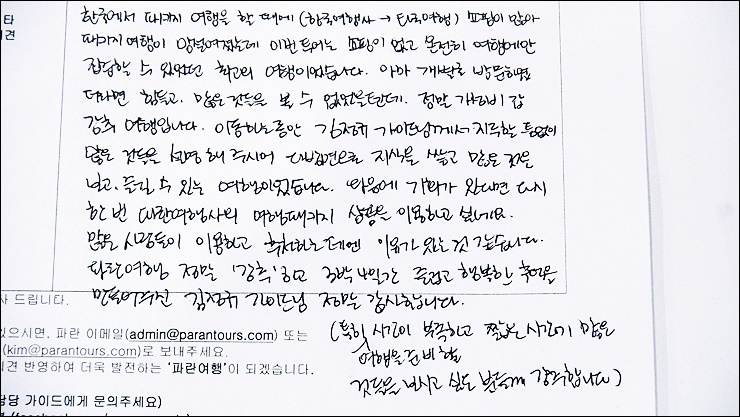 타
의견
한국에서 패키지 여행을 한 때에 (한국여행사 → 타국여행) 쇼핑이 많아
패키지여행이 망설여졌는데 이번 투어는 쇼핑이 없고 온전히 여행에만
집중할 수 있었던 최고의 여행이었습니다. 아마 개별로 방문하였
더라면 힘들고, 많은 것들을 볼 수 없었을텐데. 정말 가성비 갑
강추 여행입니다. 이동하는동안 김진규 가이드님께서 지루할 틈없이
많은 것들을 설명해 주시어 대변면으로 지식을 쌓고 많은 것을
보고, 즐길 수 있는 여행이었습니다. 다음에 기회가 있다면 다시
한 번 파란여행사의 여행패키지 상품을 이용하고 싶네요.
많은 사람들이 이용하고 추천하는 데엔 이유가 있는 것 같습니다.
파란여행 정말 '강추'하고 3박4일간 즐겁고 행복한 추억을
만들어주신 김진규 가이드님 정말 감사합니다.
(특히 시간이 부족하고 짧은 시간에 많은
여행을 준비할
것들을 보시고 싶은 분들께 강추합니다)
사 드립니다.
있으시면, 파란 이메일(admin@parantours.com) 또는
(kim@parantours.com)로 보내주세요.
의견 반영하여 더욱 발전하는 '파란여행'이 되겠습니다.
담당 가이드에게 문의주세요)